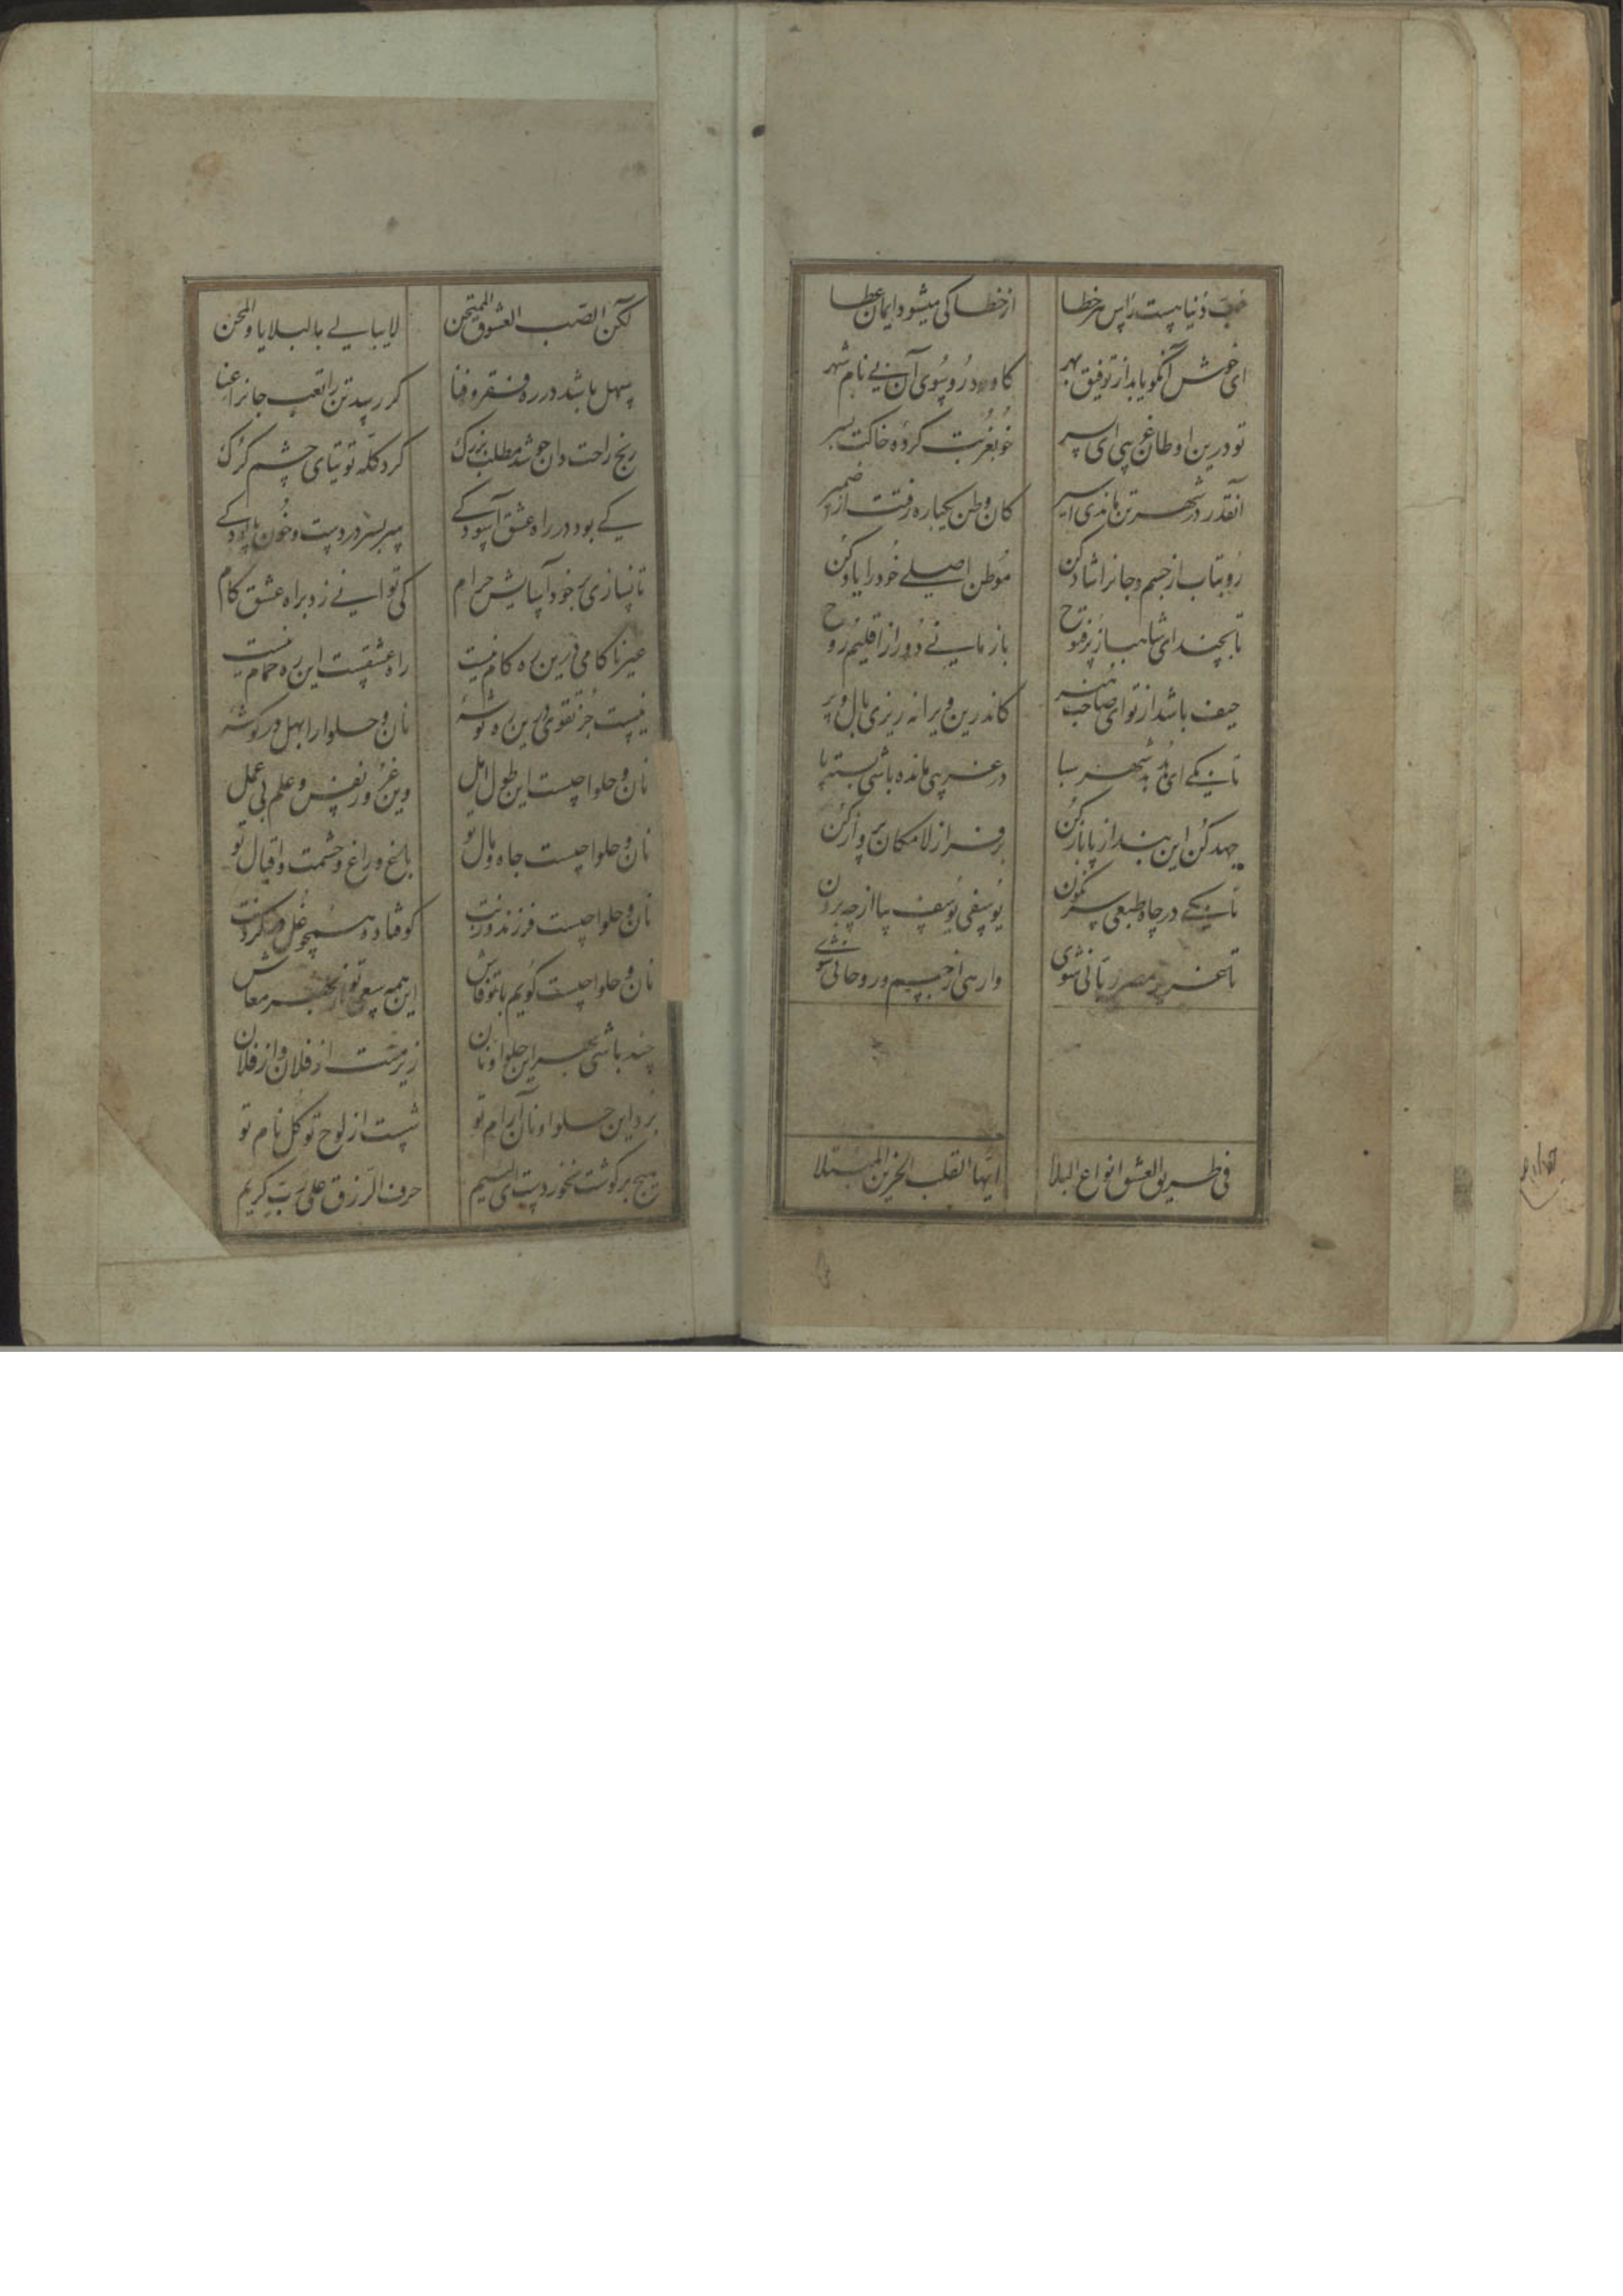 حب دنیا هست رأس هر خطا از خطا کی میشود ایمان عطا
ای خوش آنکو یابد از توفیق بهر کاورد رو سوی آن بی نام شهر
تو درین اوطان غریبی ای پسر خو بغربت کردهٔ خاکت بسر
آنقدر در شهر تن ماندی اسیر کان وطن یکباره رفتت از ضمیر
رو بتاب از جسم و جانرا شاد کن موطن اصلی خود را یاد کن
تا بچند ای شاهباز پر فتوح باز مانی دور از اقلیم روح
حیف باشد از تو ای صاحب هنر کاندرین ویرانه ریزی بال و پر
تا بکی ای هدهد شهر سبا در غریبی مانده باشی بسته پا
جهد کن این بند از پا باز کن بر فراز لامکان پرواز کن
تا بکی در چاه طبعی سرنگون یوسفی یوسف بیا از چه برون
تا عزیز مصر ربانی شوی وارهی از جسم و روحانی شوی
ایها القلب الحزین المبتلا فی طریق العشق انواع البلا
لکن الصب العشوق الممتحن لا یبالی بالبلایا والمحن
سهل باشد در ره فقر و فنا کر رسد تن را تعب جانرا عنا
رنج راحت دان چو شد مطلب بزرک کرد کله توتیای چشم کرک
کی بود در راه عشق آسودکی سر بسر دردست و خون پالودکی
تا نسازی بر خود آسایش حرام کی توانی زد براه عشق کام
غیر ناکامی درین ره کام نیست راه عشقست این ره حمام نیست
نیست جز تقوی درین ره توشهٔ نان و حلوا را بهل در کوشهٔ
نان و حلوا چیست این طول امل وین غرور نفس و علم بی عمل
نان و حلوا چیست جاه و مال تو باغ و راغ و حشمت و اقبال تو
نان و حلوا چیست فرزند و زنت کوفتاده همچو غل در کردنت
نان و حلوا چیست کویم با تو فاش این همه سعی تو از بهر معاش
چند باشی بهر این حلوا و نان زیر منت از فلان و از فلان
برد این حلوا و نان آرام تو شست از لوح توکل نام تو
هیچ بر کوشت نخوردست ای لئیم حرف الرزق علی رب کریم